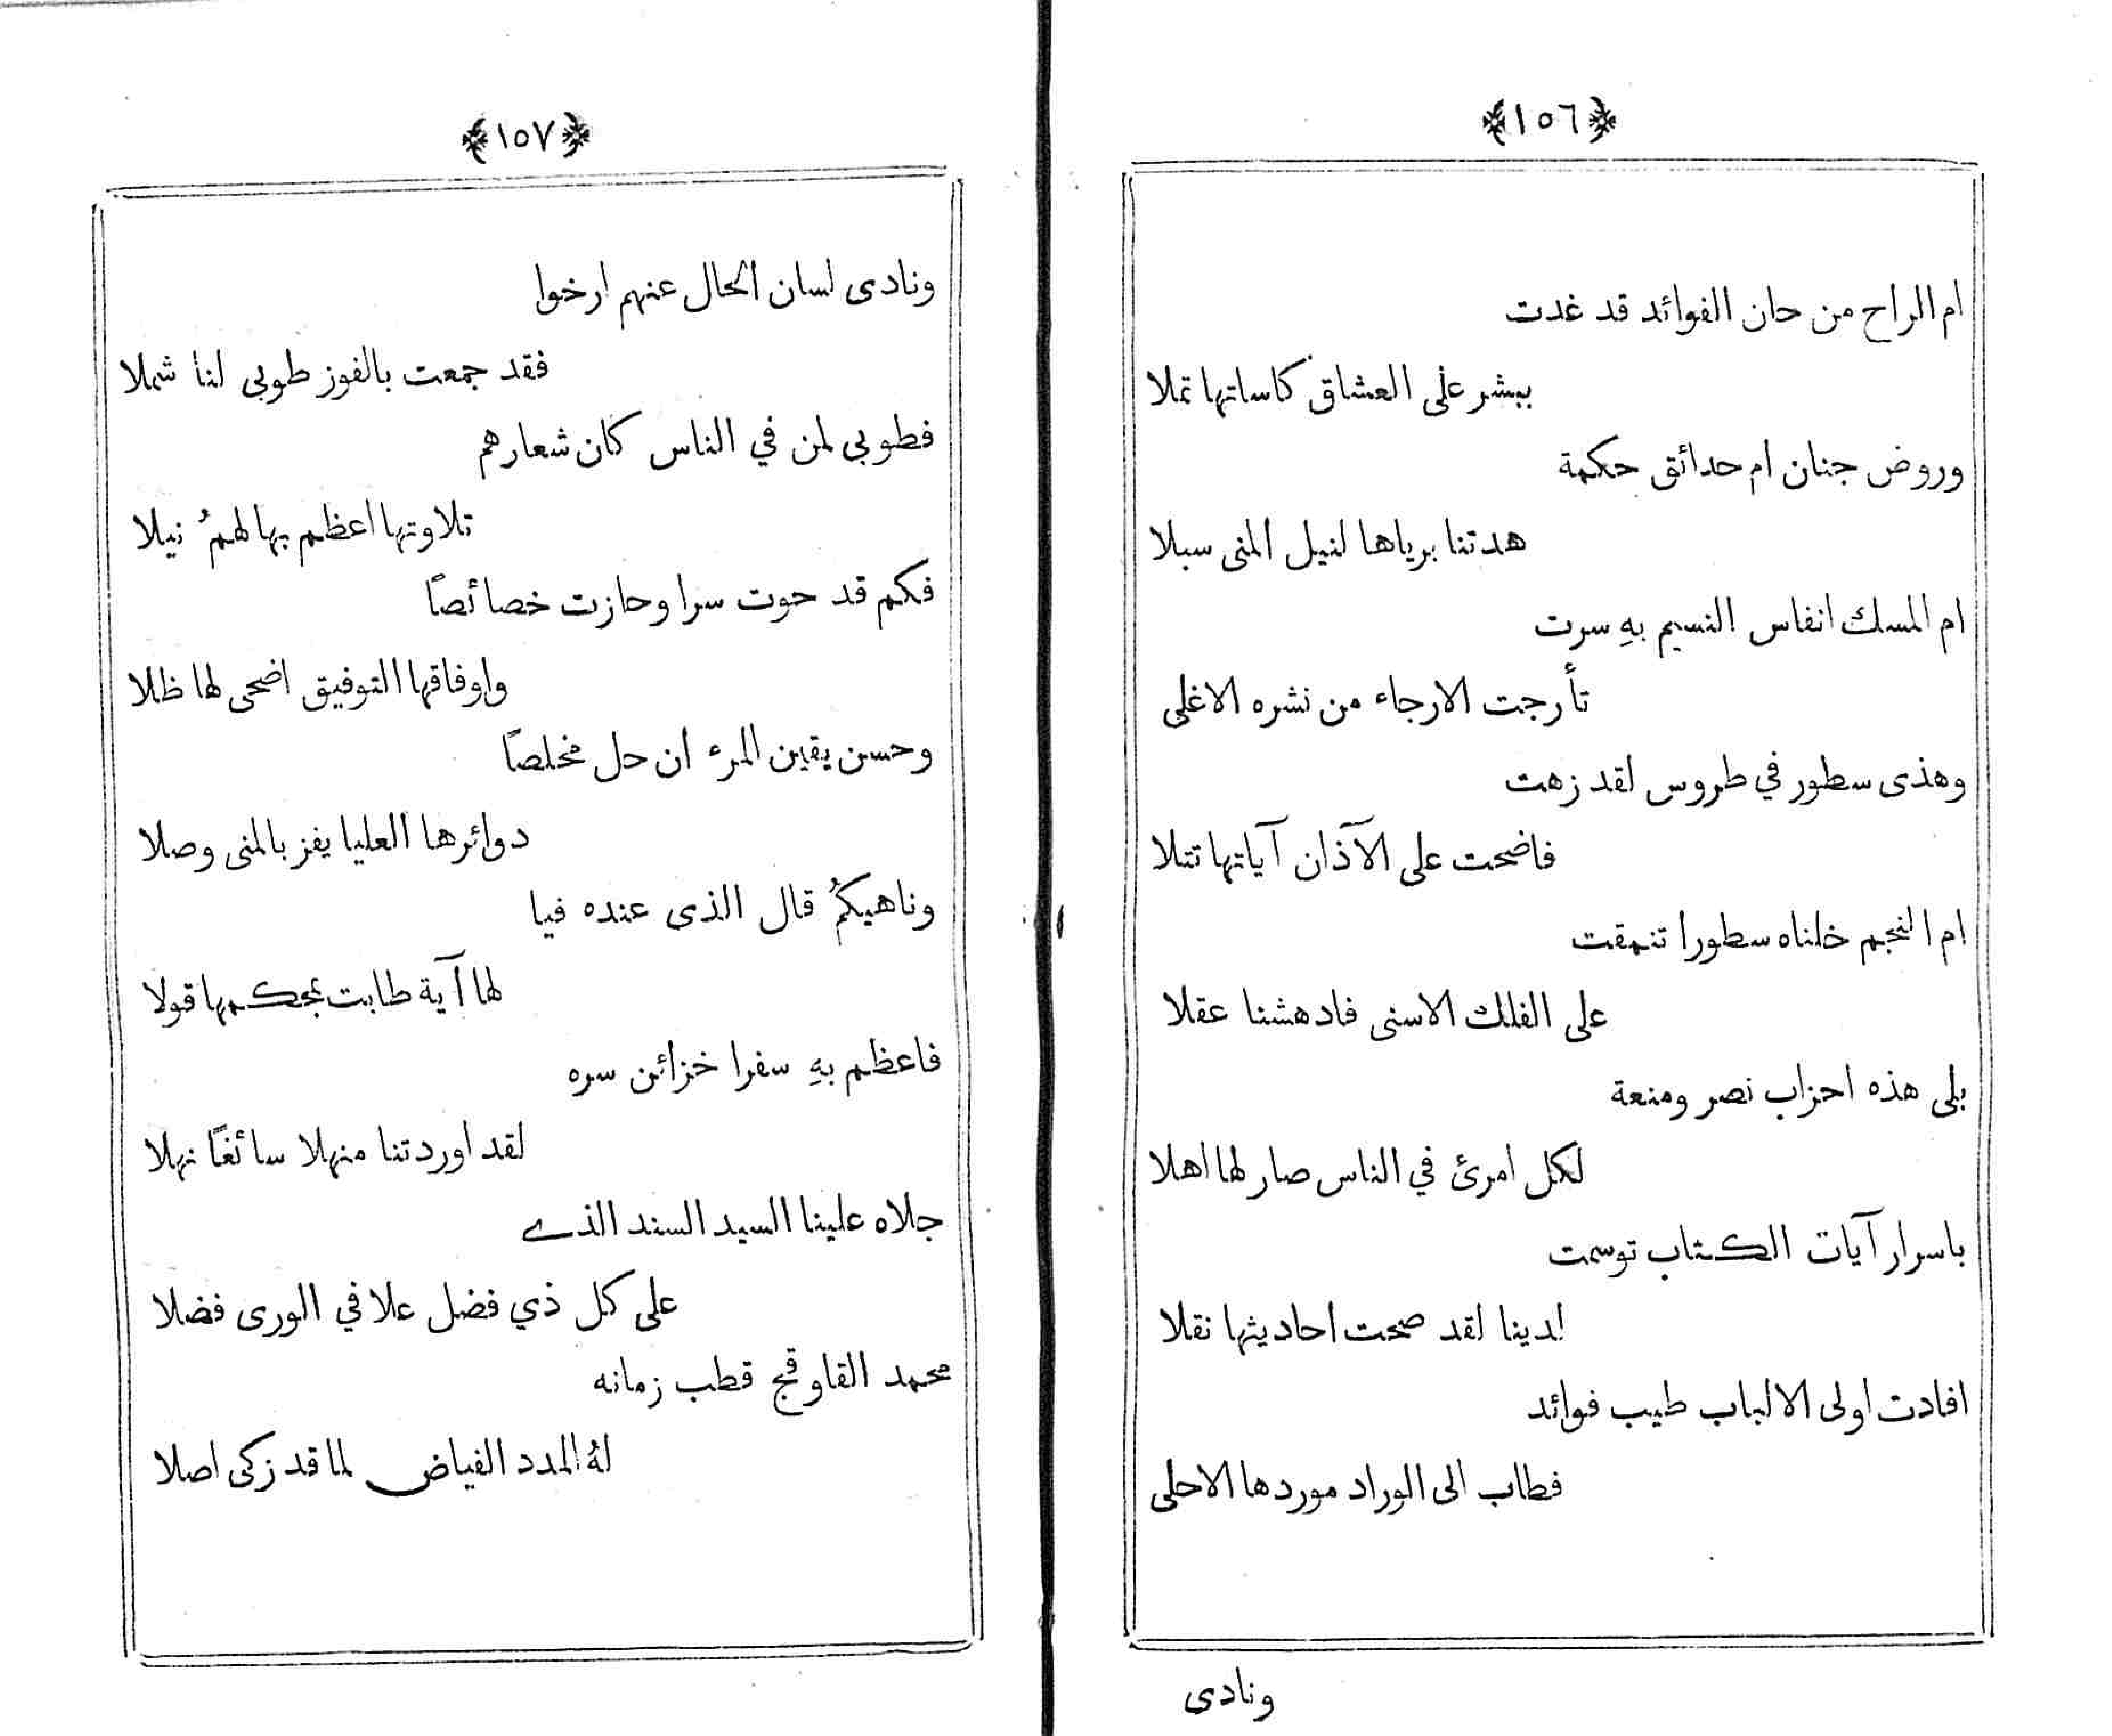 ﴿١٥٦﴾
ام الراح من حان الفوائد قد غدت
ببشر على العشاق كاساتها تملا
وروض جنان ام حدائق حكمة
هدتنا برياها لنيل المنى سبلا
ام المسك انفاس النسيم بهِ سرت
تأرجت الارجاء من نشره الاغلى
وهذى سطور في طروس لقد زهت
فاضحت على الآذان آياتها تتلا
ام النجم خلناه سطورا تنمقت
على الفلك الاسنى فادهشنا عقلا
بلى هذه احزاب نصر ومنعة
لكل امرئ في الناس صار لها اهلا
باسرار آيات الكتاب توسمت
لدينا لقد صحت احاديثها نقلا
افادت اولى الالباب طيب فوائد
فطاب الى الوراد موردها الاحلى
ونادى
﴿١٥٧﴾
ونادى لسان الحال عنهم ارخوا
فقد جمعت بالفوز طوبى لنا شملا
فطوبى لمن في الناس كان شعارهم
تلاوتها اعظم بها لهمُ نيلا
فكم قد حوت سرا وحازت خصائصاً
واوفاقها التوفيق اضحى لها ظلا
وحسن يقين المرء ان حل مخلصاً
دوائرها العليا يفز بالمنى وصلا
وناهيكمُ قال الذى عنده فيا
لها آية طابت بمحكمها قولا
فاعظم بهِ سفرا خزائن سره
لقد اوردتنا منهلا سائغاً نهلا
جلاه علينا السيد السند الذے
على كل ذي فضل علا في الورى فضلا
محمد القاوقجى قطب زمانه
لهُ المدد الفياض لما قد زكى اصلا